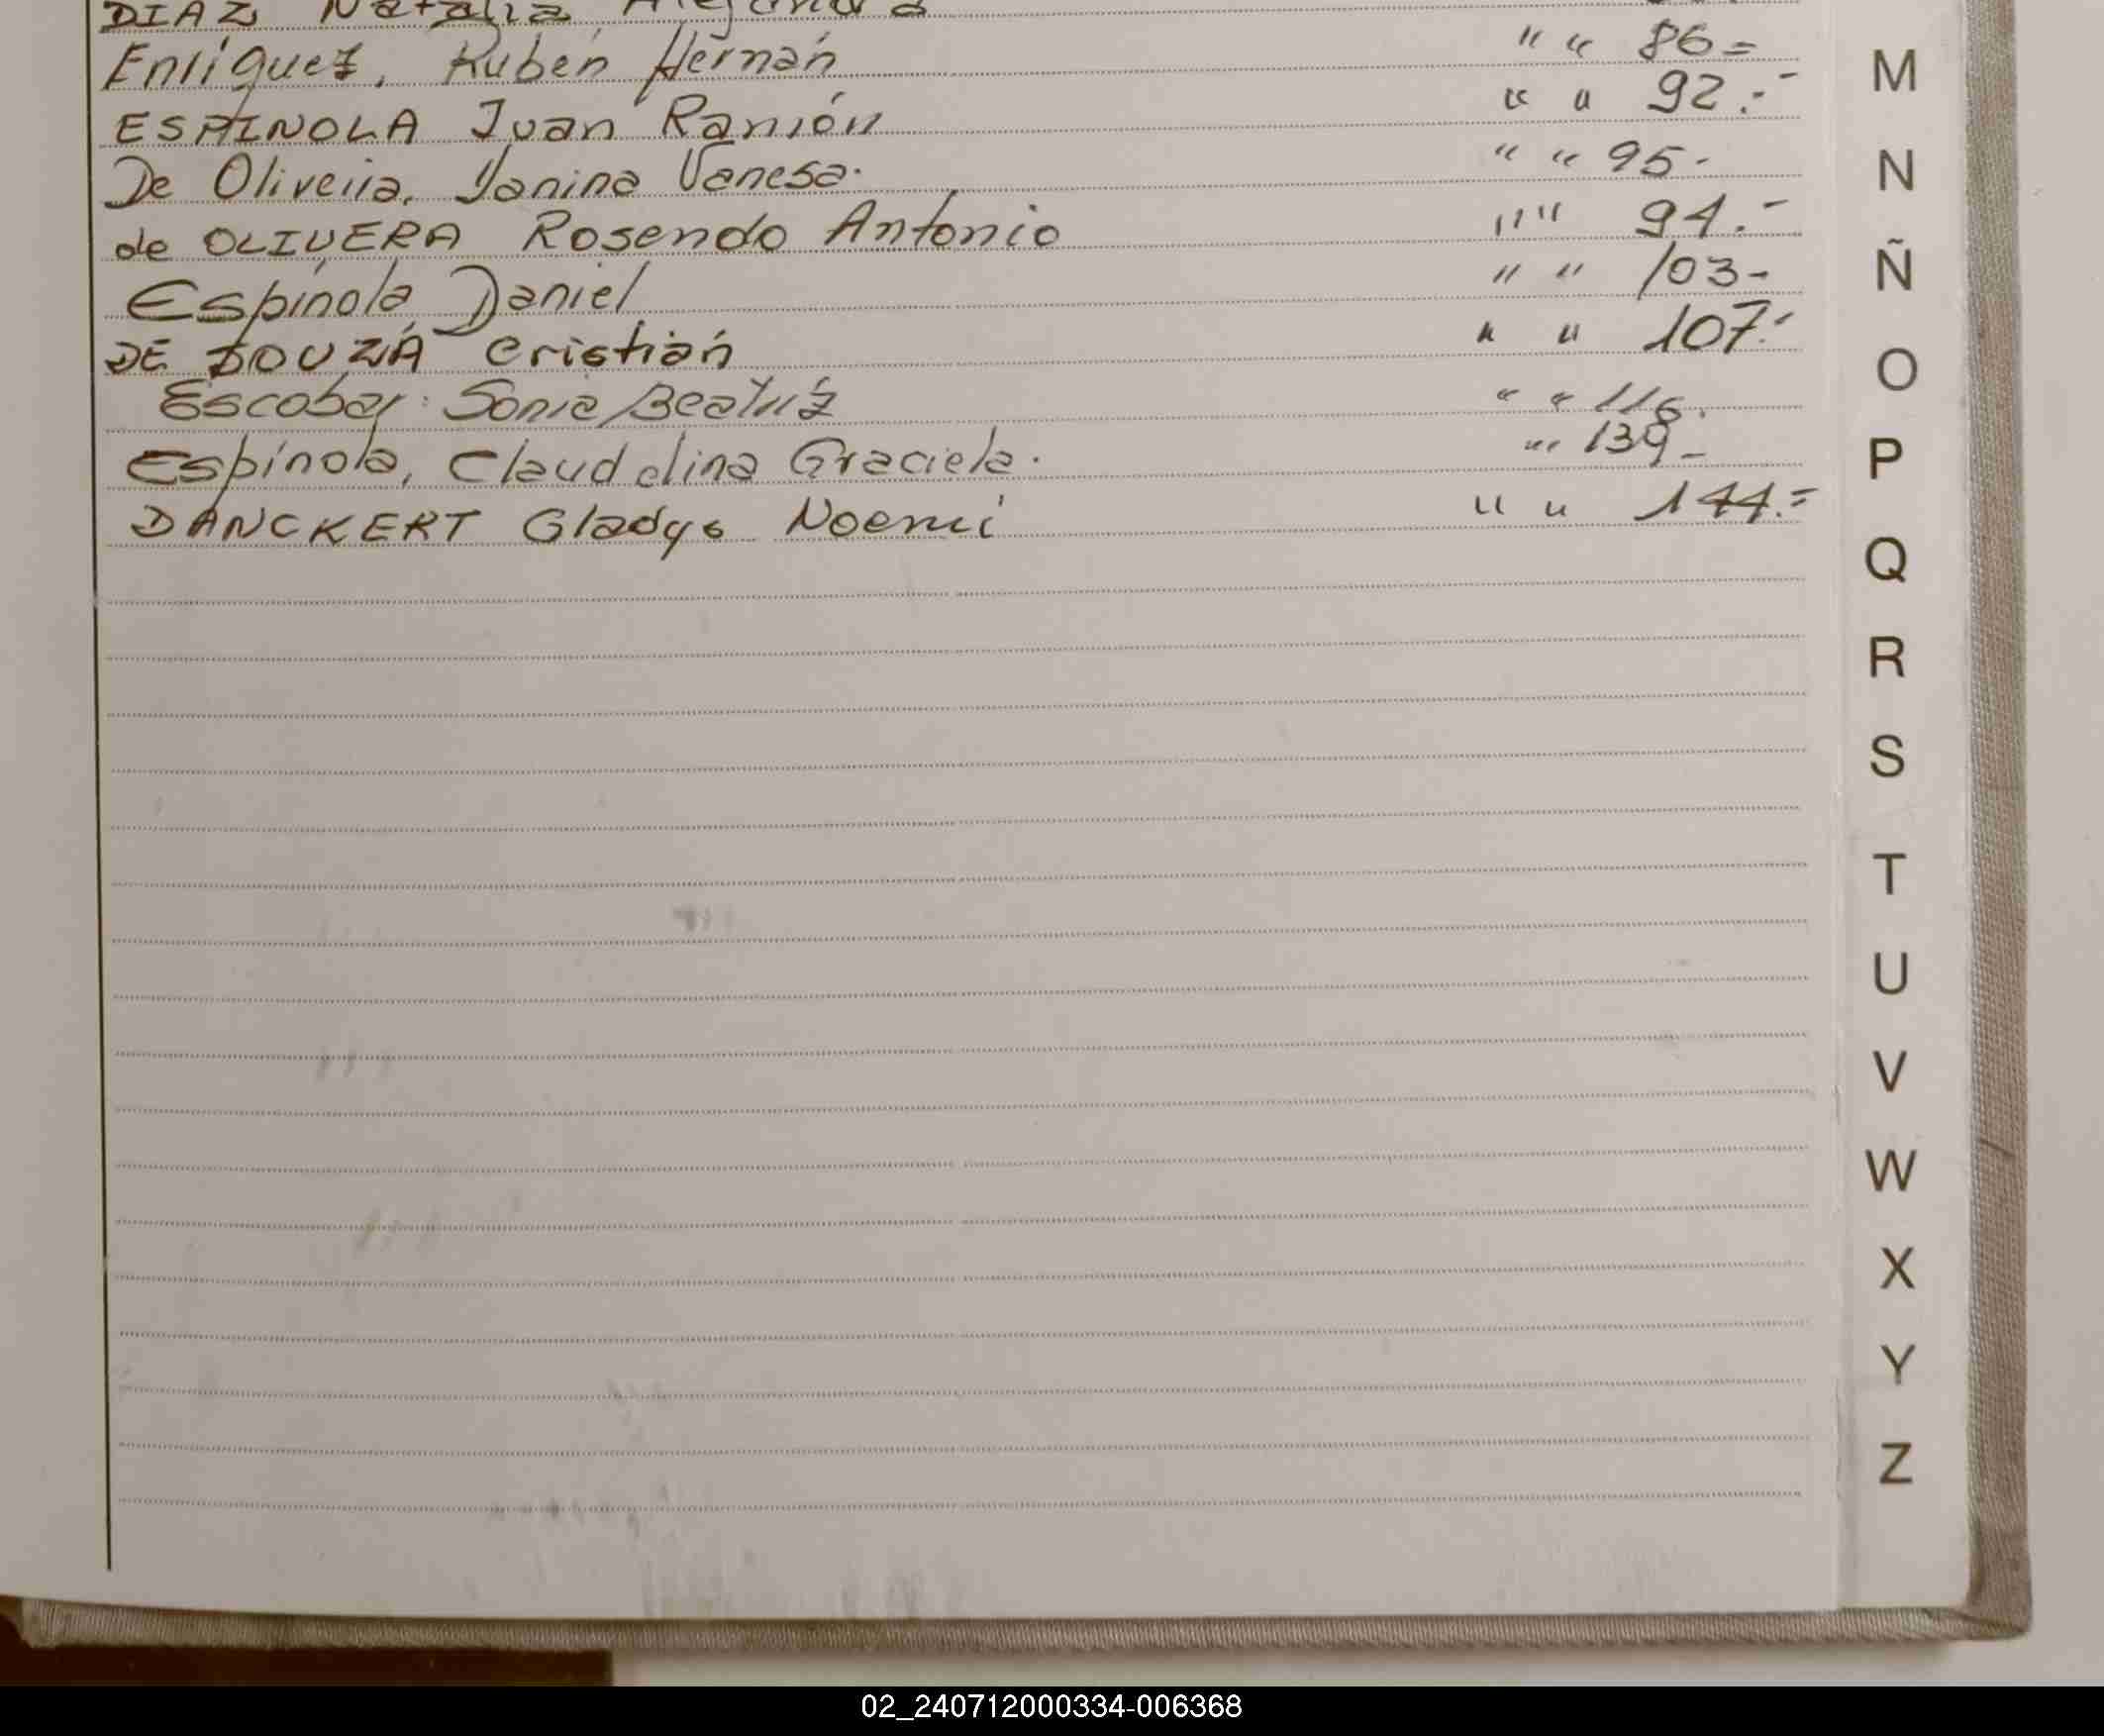 DIAZ Natalia Alejandra
Enriquez, Rubén Hernán " " 86=
ESPÍNOLA Juan Ramón " " 92.-
De Oliveira, Yanina Vanesa. " " 95-
de OLIVERA Rosendo Antonio " " 94.-
Espínola, Daniel " " 103-
DE SOUZA Cristián " " 107.-
Escobar: Sonia Beatríz " " 116.
Espínola, Claudelina Graciela. " " 139-
DANCKERT Gladys Noemí " " 144.=
M
N
Ñ
O
P
Q
R
S
T
U
V
W
X
Y
Z
02_240712000334-006368